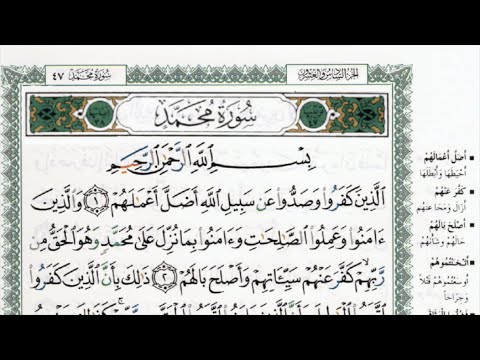 الجزء السادس والعشرون
سورة محمد ٤٧
سُورَةُ مُحَمَّد
بِسْمِ ٱللَّهِ ٱلرَّحْمَٰنِ ٱلرَّحِيمِ
ٱلَّذِينَ كَفَرُوا۟ وَصَدُّوا۟ عَن سَبِيلِ ٱللَّهِ أَضَلَّ أَعْمَٰلَهُمْ ١ وَٱلَّذِينَ
ءَامَنُوا۟ وَعَمِلُوا۟ ٱلصَّٰلِحَٰتِ وَءَامَنُوا۟ بِمَا نُزِّلَ عَلَىٰ مُحَمَّدٍ وَهُوَ ٱلْحَقُّ مِن
رَّبِّهِمْ كَفَّرَ عَنْهُمْ سَيِّـَٔاتِهِمْ وَأَصْلَحَ بَالَهُمْ ٢ ذَٰلِكَ بِأَنَّ ٱلَّذِينَ كَفَرُوا۟
أضل أعمالهم
أحبطها وأبطلها
كفر عنهم
أزال ومحا عنهم
أصلح بالهم
حالهم وشأنهم
أثخنتموهم
أوسعتموهم قتلاً
وجراحاً